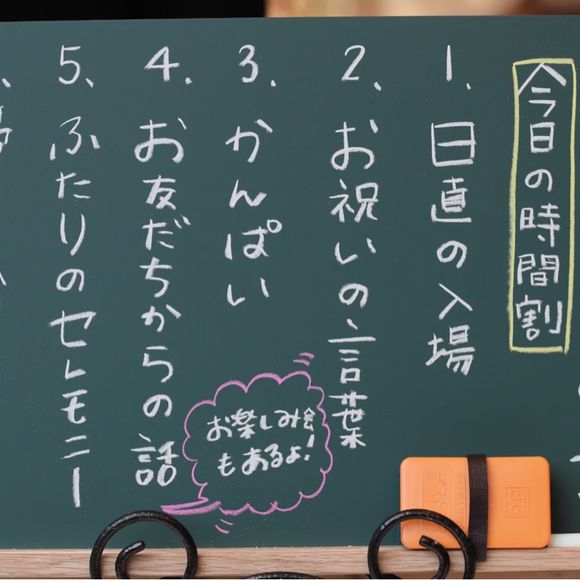 今日の時間割
1、日直の入場
2、お祝いの言葉
3、かんぱい
4、お友だちからの話
お楽しみ会
もあるよ!
5、ふたりのセレモニー